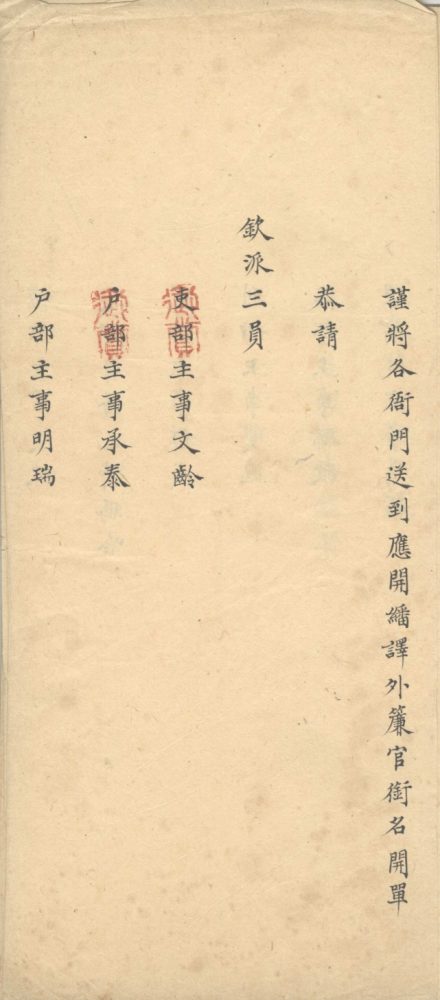 謹將各衙門送到應開繙譯外簾官銜名開單
恭請
欽派三員
吏部主事文齡
戶部主事承泰
戶部主事明瑞